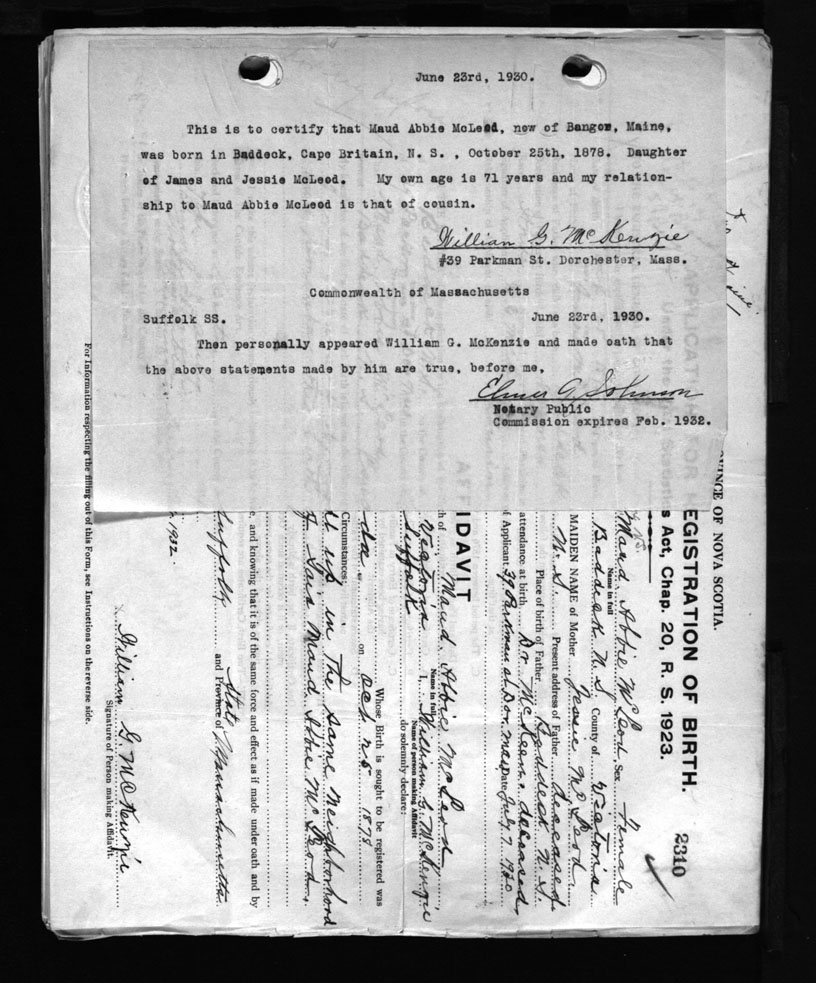 June 23rd, 1930.
This is to certify that Maud Abbie McLeod, now of Bangor, Maine,
was born in Baddeck, Cape Britain, N. S. , October 25th, 1878. Daughter
of James and Jessie McLeod. My own age is 71 years and my relation-
ship to Maud Abbie McLeod is that of cousin.
William G. McKenzie
#39 Parkman St. Dorchester, Mass.
Commonwealth of Massachusetts
Suffolk SS. June 23rd, 1930.
Then personally appeared William G. McKenzie and made oath that
the above statements made by him are true, before me,
Elmer G. Johnson
Notary Public
Commission expires Feb. 1932.
VINCE OF NOVA SCOTIA.
EGISTRATION OF BIRTH. 2310
s Act, Chap. 20, R. S. 1923.
Maud Abbie McLeod Sex Female
Name in full
Baddeck N. S. County of Victoria
MAIDEN NAME of Mother Jessie McLeod
N. S. Present address of Father deceased
Place of birth of Father Baddeck N. S.
attendance at birth Dr McKeene deceased
f Applicant 39 Parkman St Dor. Mass Date July 7 1930
IDAVIT
h of Maud Abbie McLeod
Name in full
Victoria I, William G. McKenzie
Name of person making Affidavit
Suffolk do solemnly declare:
Whose Birth is sought to be registered was
da on Oct 25 1878
Circumstances:
it up in the same neighborhood
of said Maud Abbie McLeod.
e, and knowing that it is of the same force and effect as if made under oath and by
Suffolk State and Province of Massachusetts
1932
William G. McKenzie
Signature of Person making Affidavit.
For Information respecting the filling out of this Form, see Instructions on the reverse side.